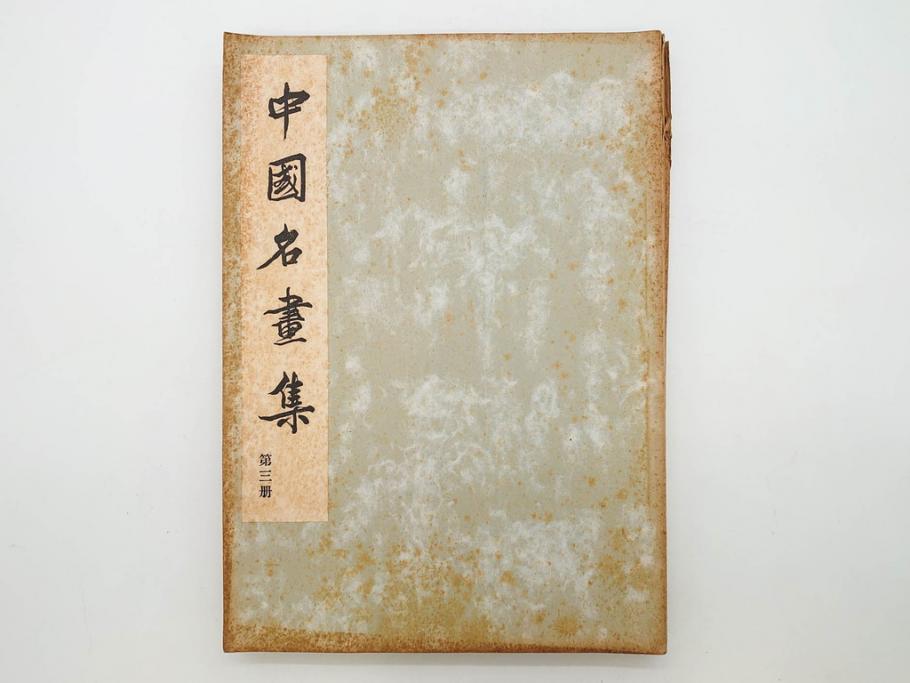 中國名畫集
第三册